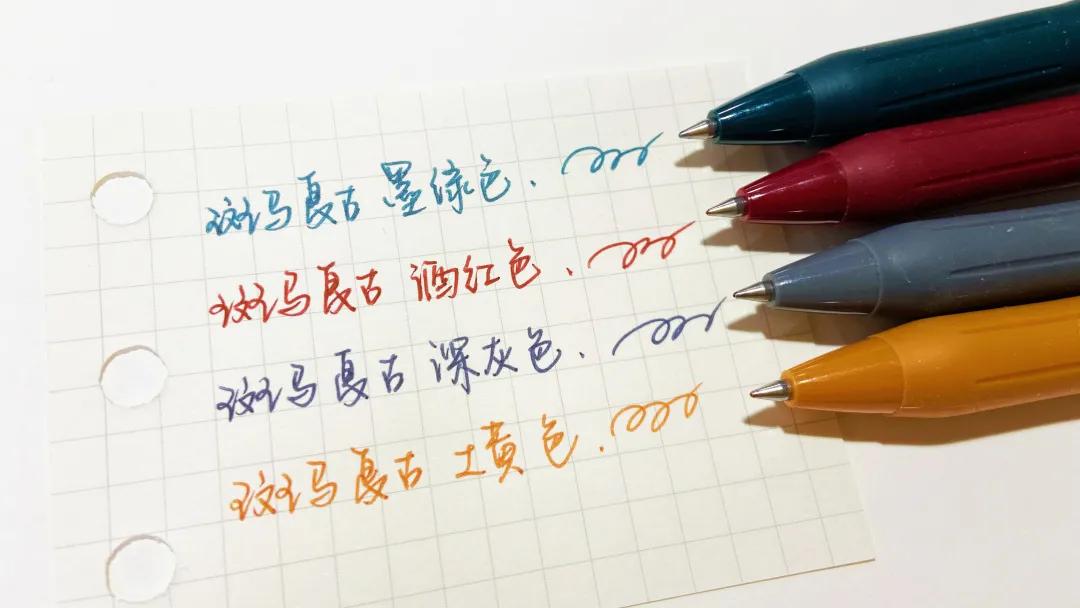 斑马复古 墨绿色.
斑马复古 酒红色.
斑马复古 深灰色.
斑马复古 土黄色.